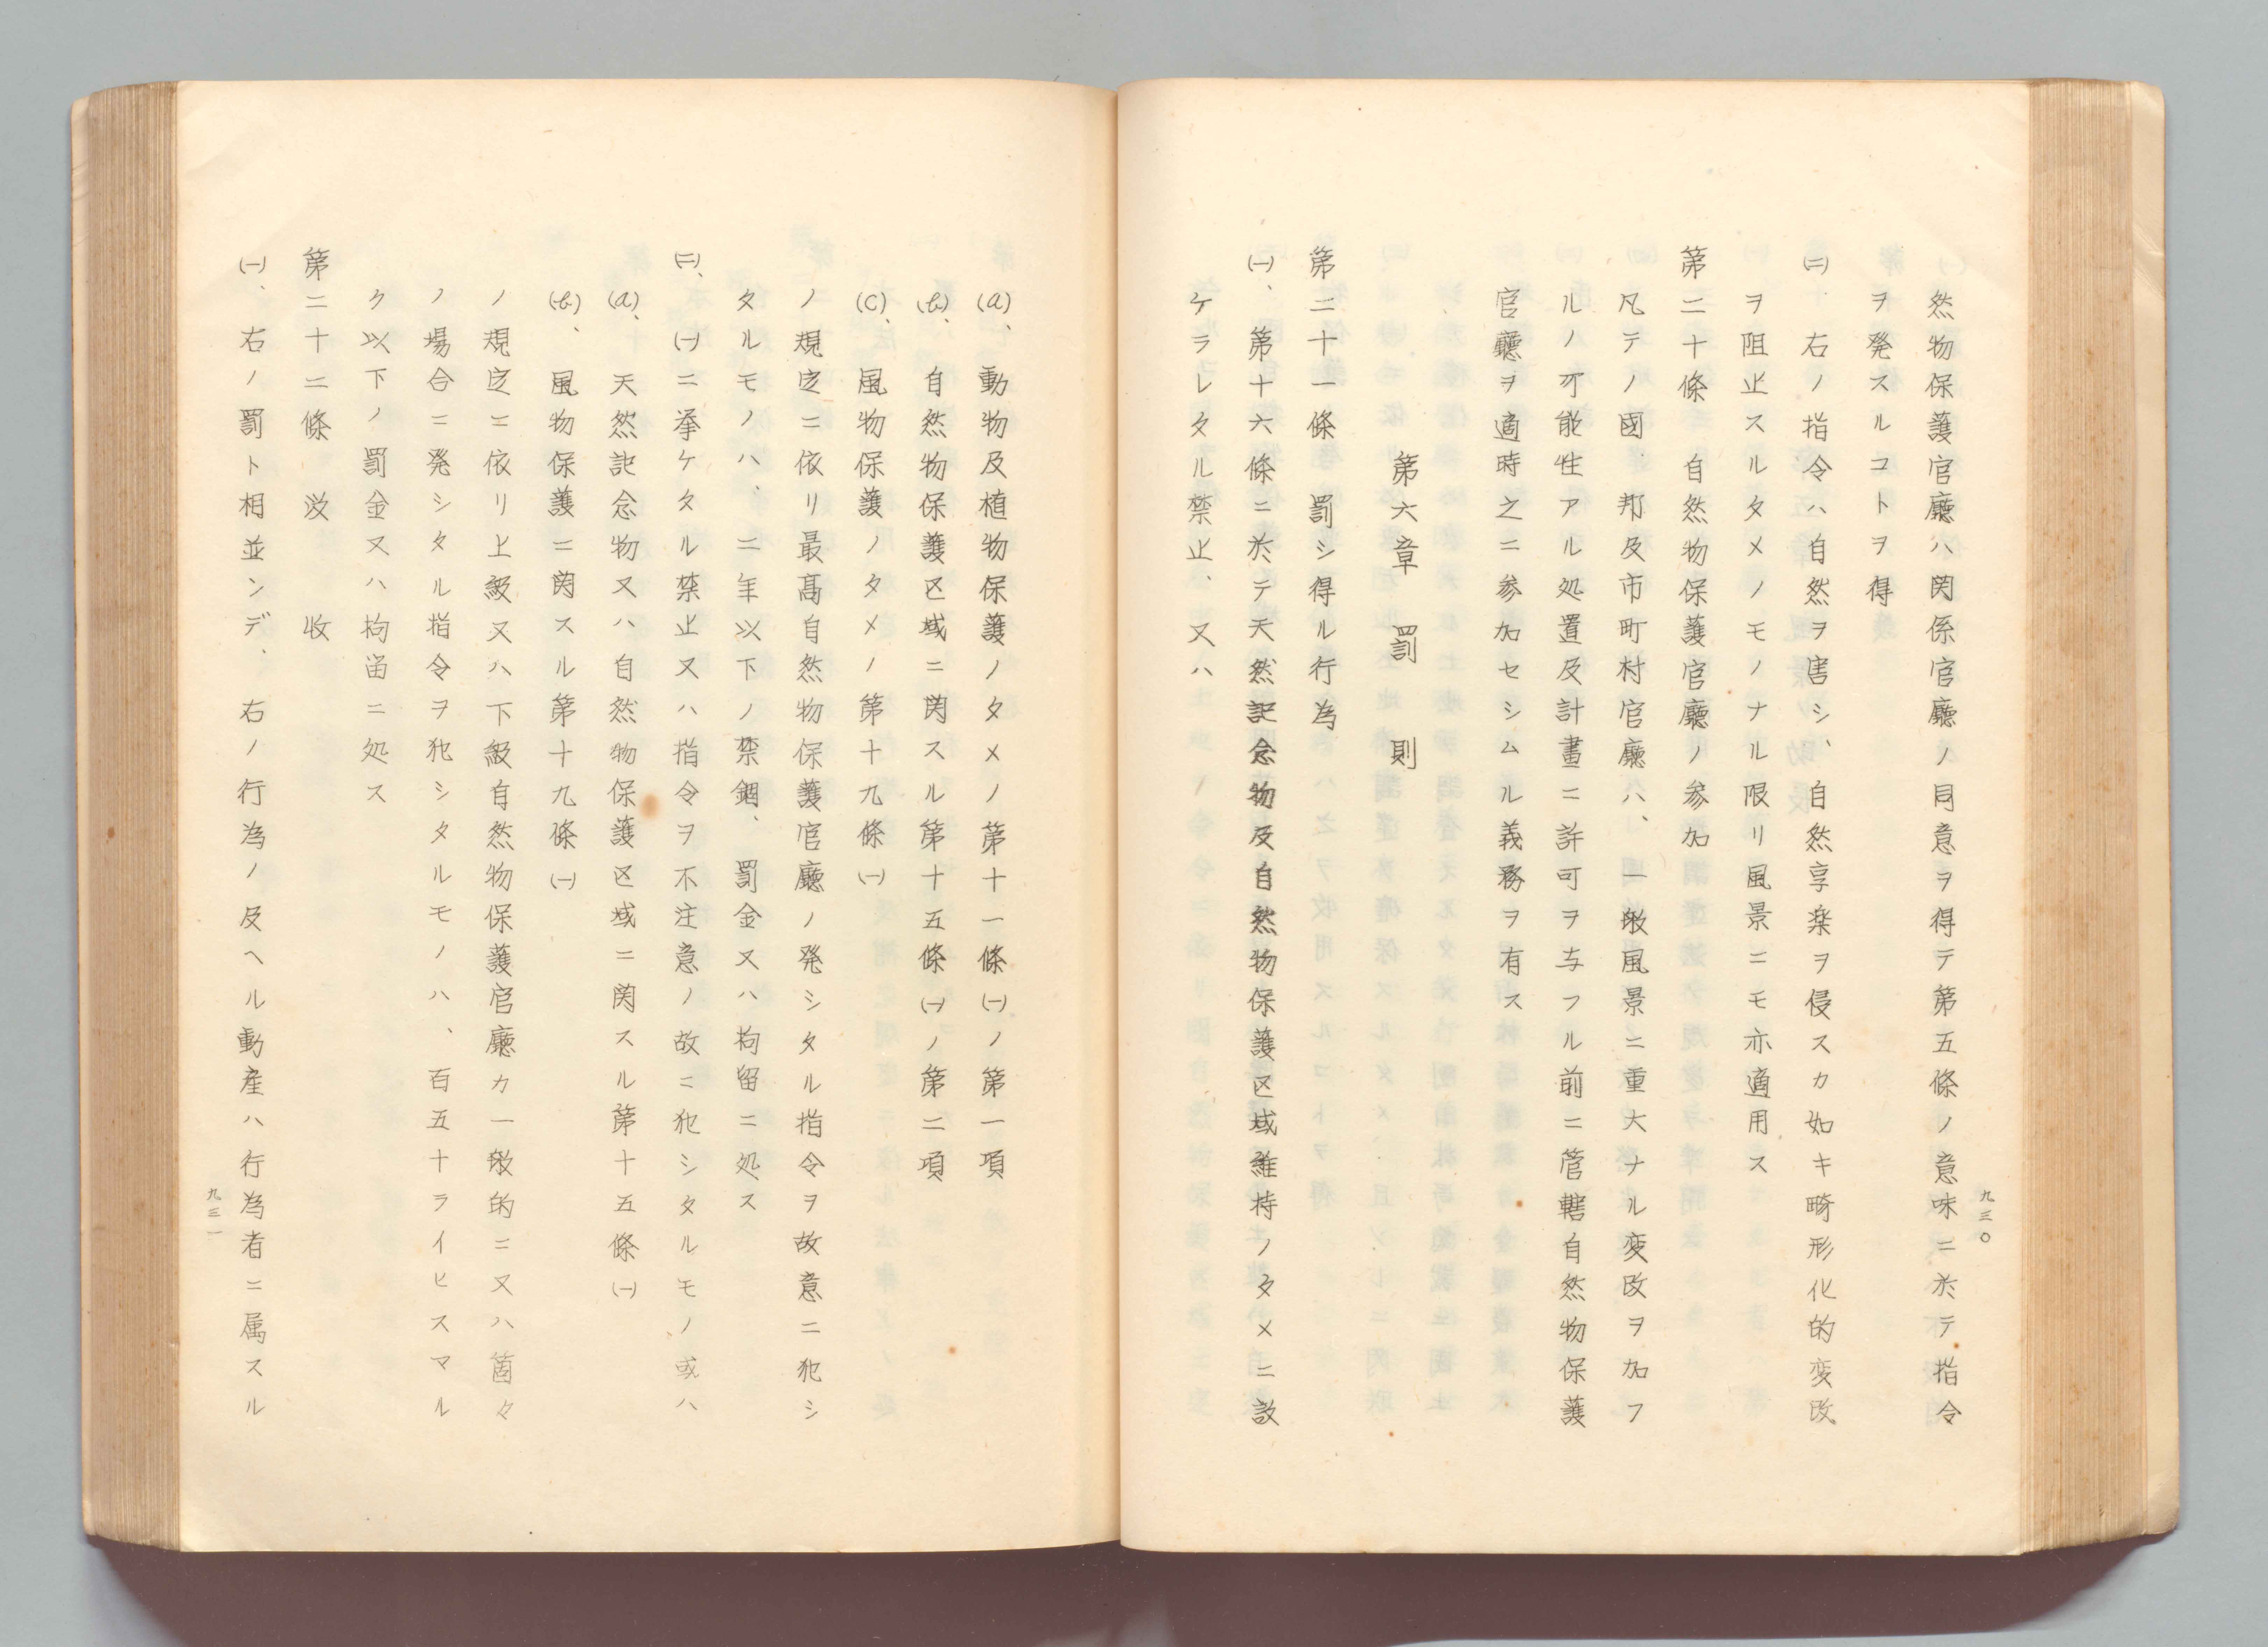 然物保護官廳ハ関係官廳ノ同意ヲ得テ第五條ノ意味ニ於テ指令
ヲ発スルコトヲ得
㈡、右ノ指令ハ自然ヲ害シ、自然享楽ヲ侵スカ如キ畸形化的変改
ヲ阻止スルタメノモノナル限リ風景ニモ亦適用ス
第二十條　自然物保護官廳ノ参加
凡テノ國、邦及市町村官廳ハ、一般風景ニ重大ナル変改ヲ加フ
ルノ可能性アル処置及計畫ニ許可ヲ与フル前ニ管轄自然物保護
官廳ヲ適時之ニ参加セシムル義務ヲ有ス
第六章　罰　則
第二十一條　罰シ得ル行為
㈠、第十六條ニ於テ天然記念物及自然物保護区域維持ノタメニ設
ケラレタル禁止、又ハ
九三〇
(a)、動物及植物保護ノタメノ第十一條㈠ノ第一項
(b)、自然物保護区域ニ関スル第十五條㈠ノ第二項
(c)、風物保護ノタメノ第十九條㈠
ノ規定ニ依リ最高自然物保護官廳ノ発シタル指令ヲ故意ニ犯シ
タルモノハ、二年以下ノ禁錮、罰金又ハ拘留ニ処ス
㈡、㈠ニ挙ケタル禁止又ハ指令ヲ不注意ノ故ニ犯シタルモノ或ハ
(a)、天然記念物又ハ自然物保護区域ニ関スル第十五條㈠
(b)、風物保護ニ関スル第十九條㈠
ノ規定ニ依リ上級又ハ下級自然物保護官廳カ一般的ニ又ハ箇々
ノ場合ニ発シタル指令ヲ犯シタルモノハ、百五十ライヒスマル
ク以下ノ罰金又ハ拘留ニ処ス
第二十二條　没　收
㈠、右ノ罰ト相並ンデ、右ノ行為ノ及ヘル動産ハ行為者ニ属スル
九三一